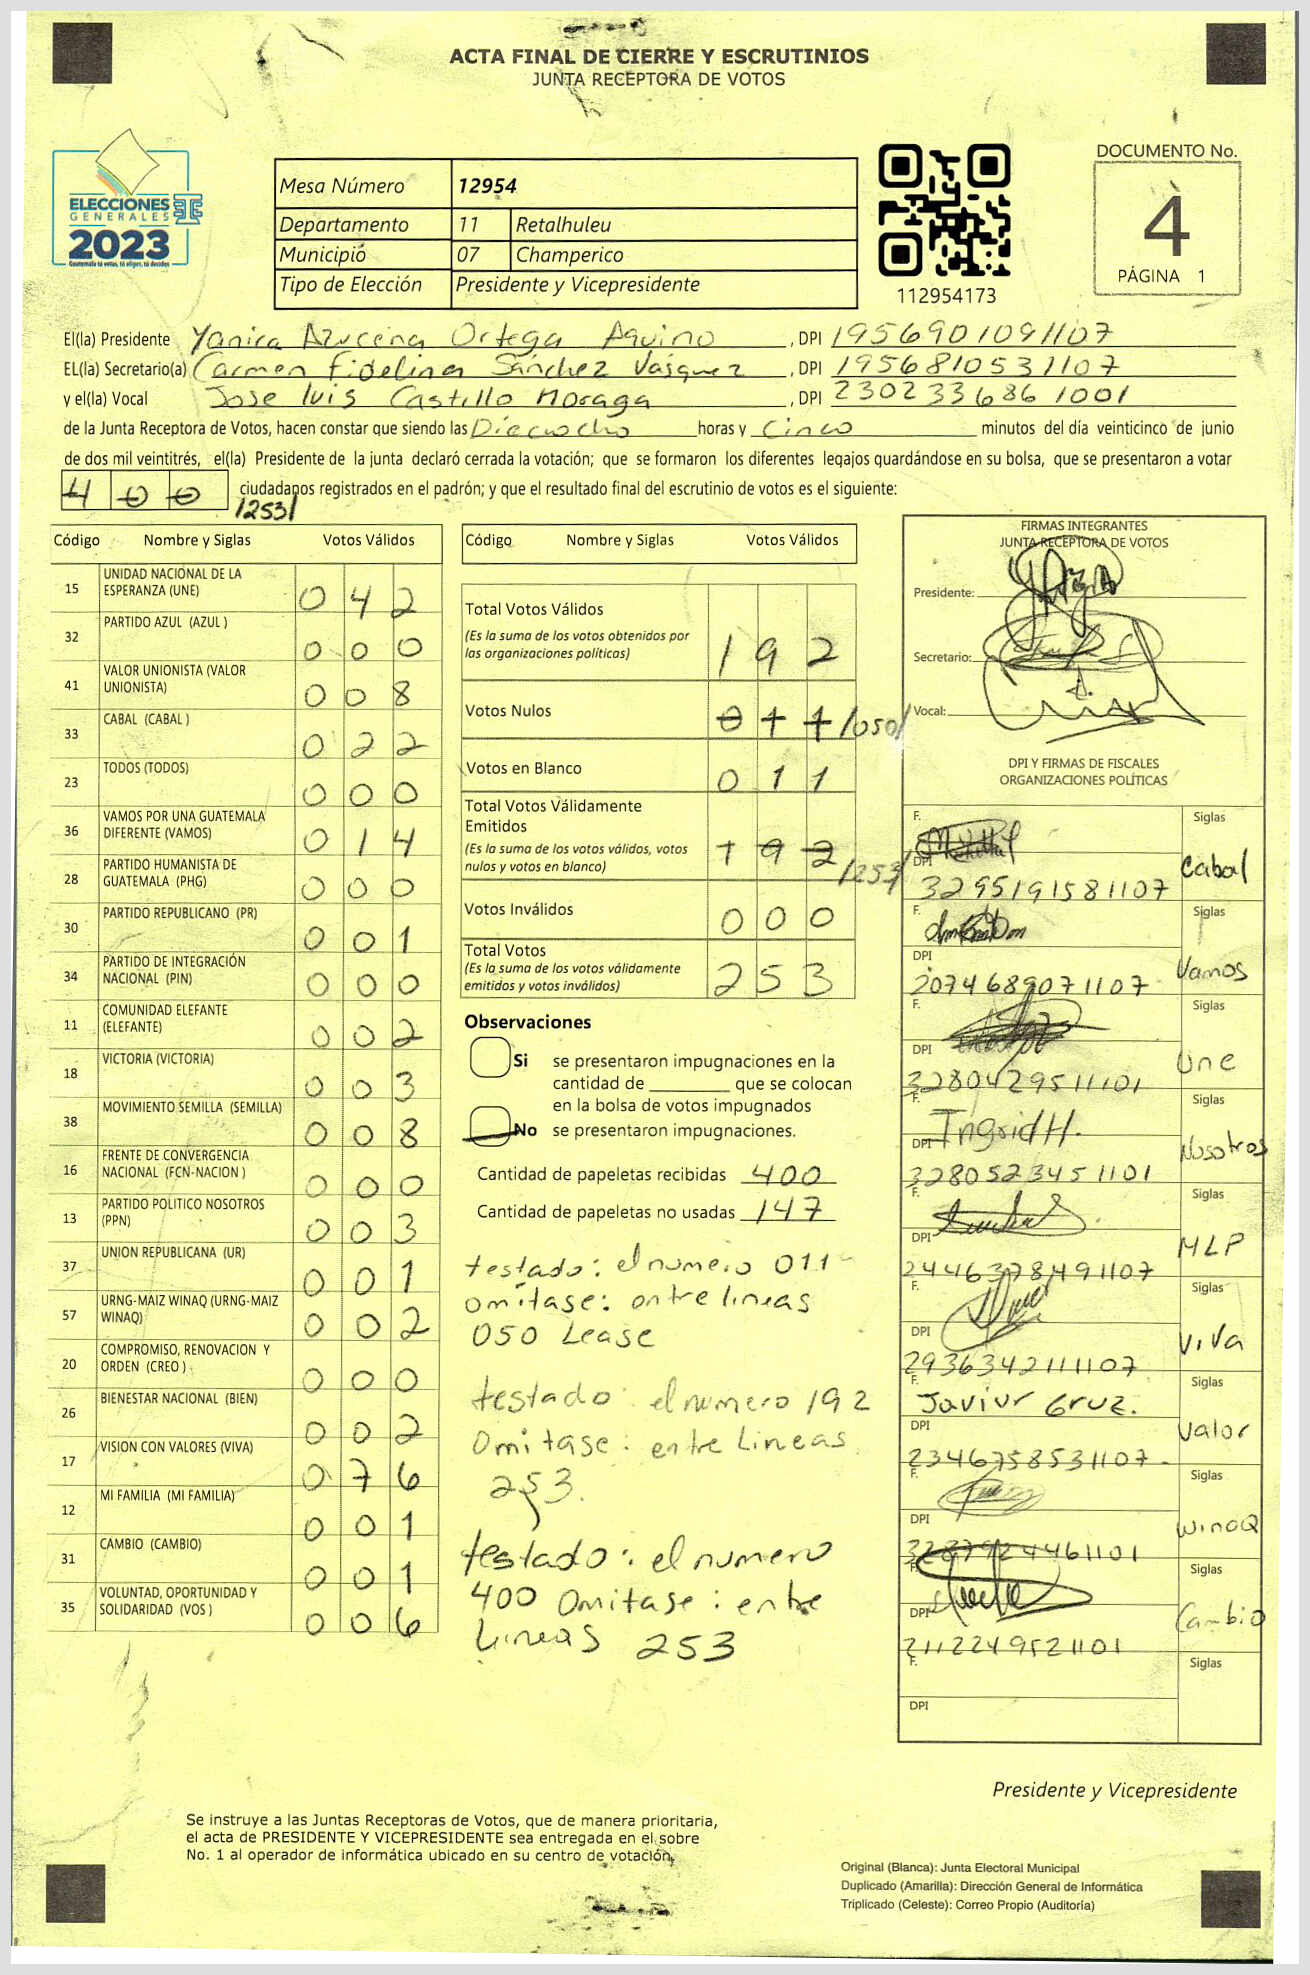 ACTA FINAL DE CIERRE Y ESCRUTINIOS
JUNTA RECEPTORA DE VOTOS
ELECCIONES
GENERALES
2023
Guatemala tú votas, tú eliges, tú decides
Mesa Número 12954
Departamento 11 Retalhuleu
Municipio 07 Champerico
Tipo de Elección Presidente y Vicepresidente
112954173
DOCUMENTO No.
4
PÁGINA 1
El(la) Presidente Yanira Azucena Ortega Aquino, DPI 1956901091107
EL(la) Secretario(a) Carmen Fidelina Sánchez Vásquez, DPI 1956810531107
y el(la) Vocal Jose luis Castillo Moraga, DPI 2302336861001
de la Junta Receptora de Votos, hacen constar que siendo las Dieciocho horas y Cinco minutos del día veinticinco de junio
de dos mil veintitrés, el(la) Presidente de la junta declaró cerrada la votación; que se formaron los diferentes legajos guardándose en su bolsa, que se presentaron a votar
400 ciudadanos registrados en el padrón; y que el resultado final del escrutinio de votos es el siguiente:
/253/
Código Nombre y Siglas Votos Válidos
15 UNIDAD NACIONAL DE LA ESPERANZA (UNE) 042
32 PARTIDO AZUL (AZUL ) 000
41 VALOR UNIONISTA (VALOR UNIONISTA) 008
33 CABAL (CABAL ) 022
23 TODOS (TODOS) 000
36 VAMOS POR UNA GUATEMALA DIFERENTE (VAMOS) 014
28 PARTIDO HUMANISTA DE GUATEMALA (PHG) 000
30 PARTIDO REPUBLICANO (PR) 001
34 PARTIDO DE INTEGRACIÓN NACIONAL (PIN) 000
11 COMUNIDAD ELEFANTE (ELEFANTE) 002
18 VICTORIA (VICTORIA) 003
38 MOVIMIENTO SEMILLA (SEMILLA) 008
16 FRENTE DE CONVERGENCIA NACIONAL (FCN-NACION ) 000
13 PARTIDO POLITICO NOSOTROS (PPN) 003
37 UNION REPUBLICANA (UR) 001
57 URNG-MAIZ WINAQ (URNG-MAIZ WINAQ) 002
20 COMPROMISO, RENOVACION Y ORDEN (CREO ) 000
26 BIENESTAR NACIONAL (BIEN) 002
17 VISION CON VALORES (VIVA) 076
12 MI FAMILIA (MI FAMILIA) 001
31 CAMBIO (CAMBIO) 001
35 VOLUNTAD, OPORTUNIDAD Y SOLIDARIDAD (VOS ) 006
Código Nombre y Siglas Votos Válidos
Total Votos Válidos
(Es la suma de los votos obtenidos por
las organizaciones políticas) 192
Votos Nulos 011 /050/
Votos en Blanco 011
Total Votos Válidamente
Emitidos
(Es la suma de los votos válidos, votos
nulos y votos en blanco) 192 /253/
Votos Inválidos 000
Total Votos
(Es la suma de los votos válidamente
emitidos y votos inválidos) 253
Observaciones
Si se presentaron impugnaciones en la
cantidad de ________ que se colocan
en la bolsa de votos impugnados
No se presentaron impugnaciones.
Cantidad de papeletas recibidas 400
Cantidad de papeletas no usadas 147
testado: el numero 011
omitase: entre lineas
050 Lease
testado: el numero 192
Omitase: entre Lineas
253.
testado: el numero
400 Omitase: entre
Lineas 253
FIRMAS INTEGRANTES
JUNTA RECEPTORA DE VOTOS
Presidente:
Secretario:
Vocal:
DPI Y FIRMAS DE FISCALES
ORGANIZACIONES POLÍTICAS
F. Siglas
DPI Cabal
3295191581107
F. Siglas
DPI Vamos
2074689071107
F. Siglas
DPI Une
3280429511101
F. Siglas
DPI Ingrid H. Nosotros
3280523451101
F. Siglas
DPI MLP
2446378491107
F. Siglas
DPI VIVA
2936342111107
F. Siglas
Javiur Cruz.
DPI Valor
2346758531107
F. Siglas
DPI WinaQ
3237924461101
F. Siglas
DPI Cambio
2112249521101
F. Siglas
DPI
Presidente y Vicepresidente
Se instruye a las Juntas Receptoras de Votos, que de manera prioritaria,
el acta de PRESIDENTE Y VICEPRESIDENTE sea entregada en el sobre
No. 1 al operador de informática ubicado en su centro de votación.
Original (Blanca): Junta Electoral Municipal
Duplicado (Amarilla): Dirección General de Informática
Triplicado (Celeste): Correo Propio (Auditoría)